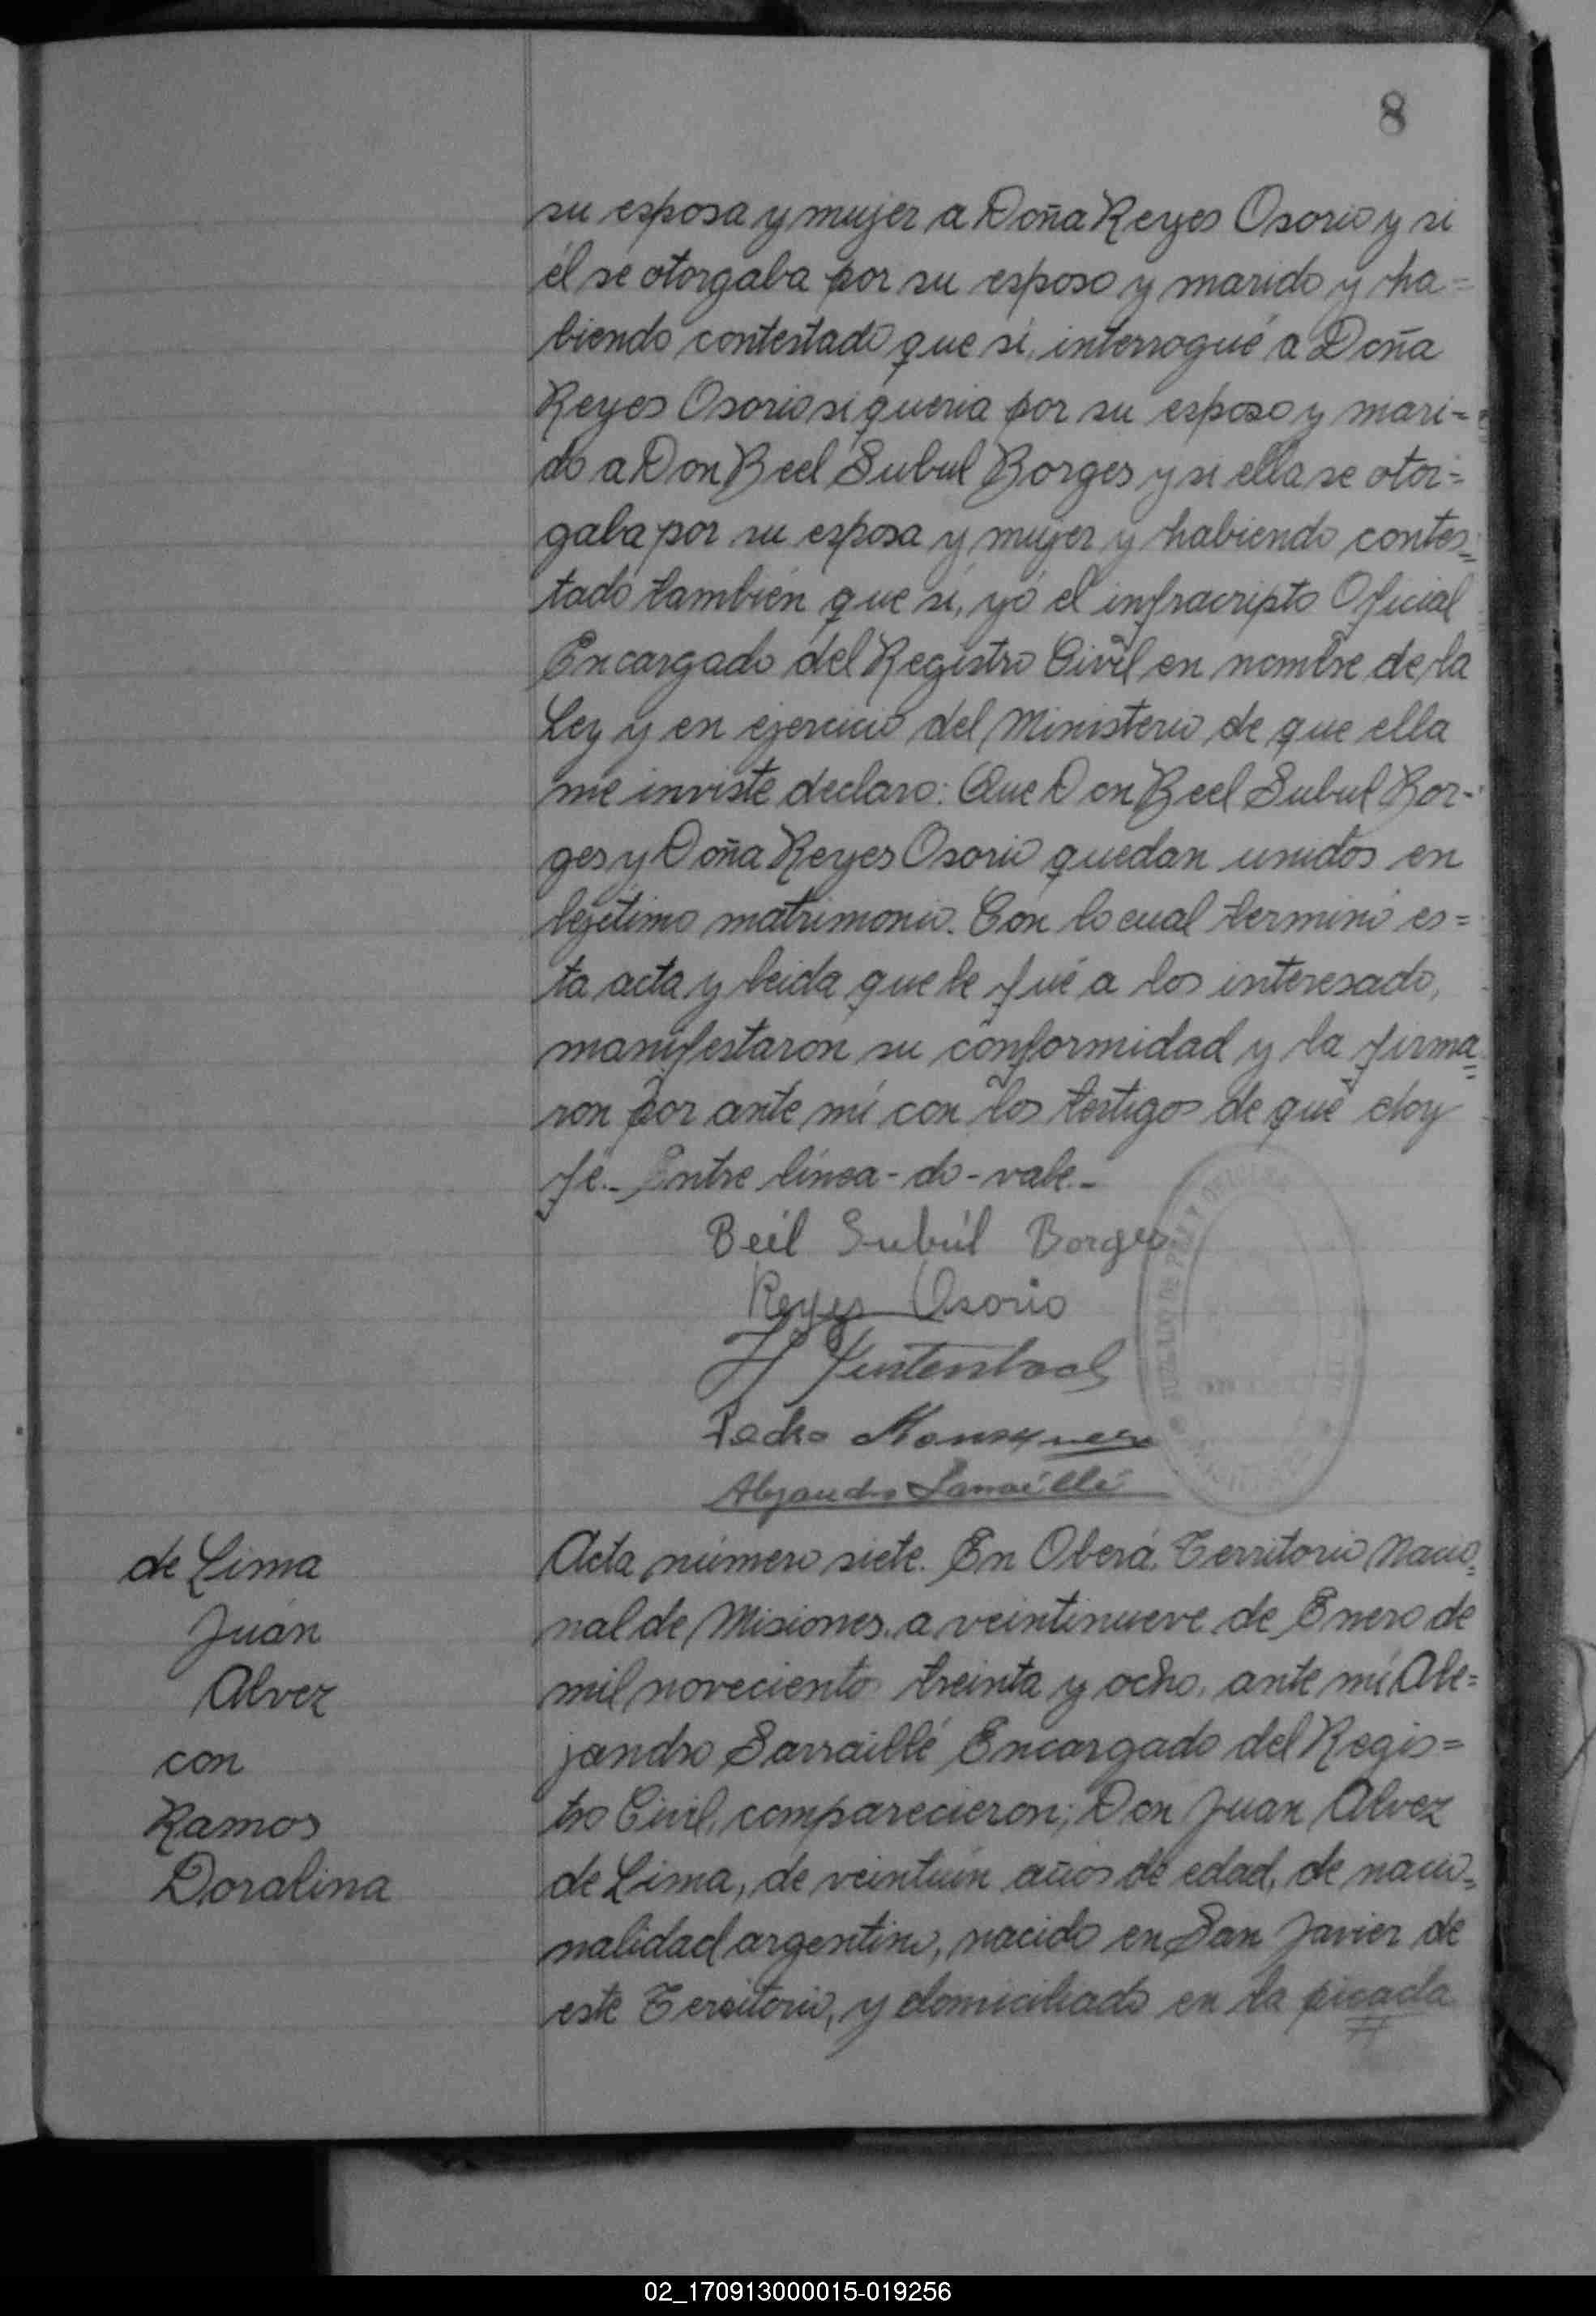 8
su esposa y mujer a Doña Reyes Osorio y si
él se otorgaba por su esposo y marido y ha=
biendo contestado que sí, interrogué a Doña
Reyes Osorio si queria por su esposo y mari-
do a Don Beel Subul Borges y si ella se otor=
gaba por su esposa y mujer y habiendo contes=
tado también que sí, yo el infracripto Oficial
Encargado del Registro Civil en nombre de la
Ley y en ejercicio del Ministerio de que ella
me inviste declaro: Que Don Beel Subul Bor-
ges y Doña Reyes Osorio quedan unidos en
lejítimo matrimonio. Con lo cual terminó es=
ta acta y leida que le fué a los interesado,
manifestaron su conformidad y la firma=
ron por ante mí con los testigos de que doy
fé.- Entre línea - do - vale.-
Beel Subúl Borges
Reyes Osorio
Pedro
Alejandro Sarraillé
de Lima
Juan
Alvez
con
Ramos
Doralina
Acta número siete. En Oberá, Territorio Nacio=
nal de Misiones, a veintinueve de Enero de
mil noveciento treinta y ocho, ante mí Ale=
jandro Sarraillé Encargado del Regis=
tro Civil, comparecieron; Don Juan Alvez
de Lima, de veintiún años de edad, de nacio=
nalidad argentino, nacido en San Javier de
este Territorio, y domiciliado en la picada
02_170913000015-019256